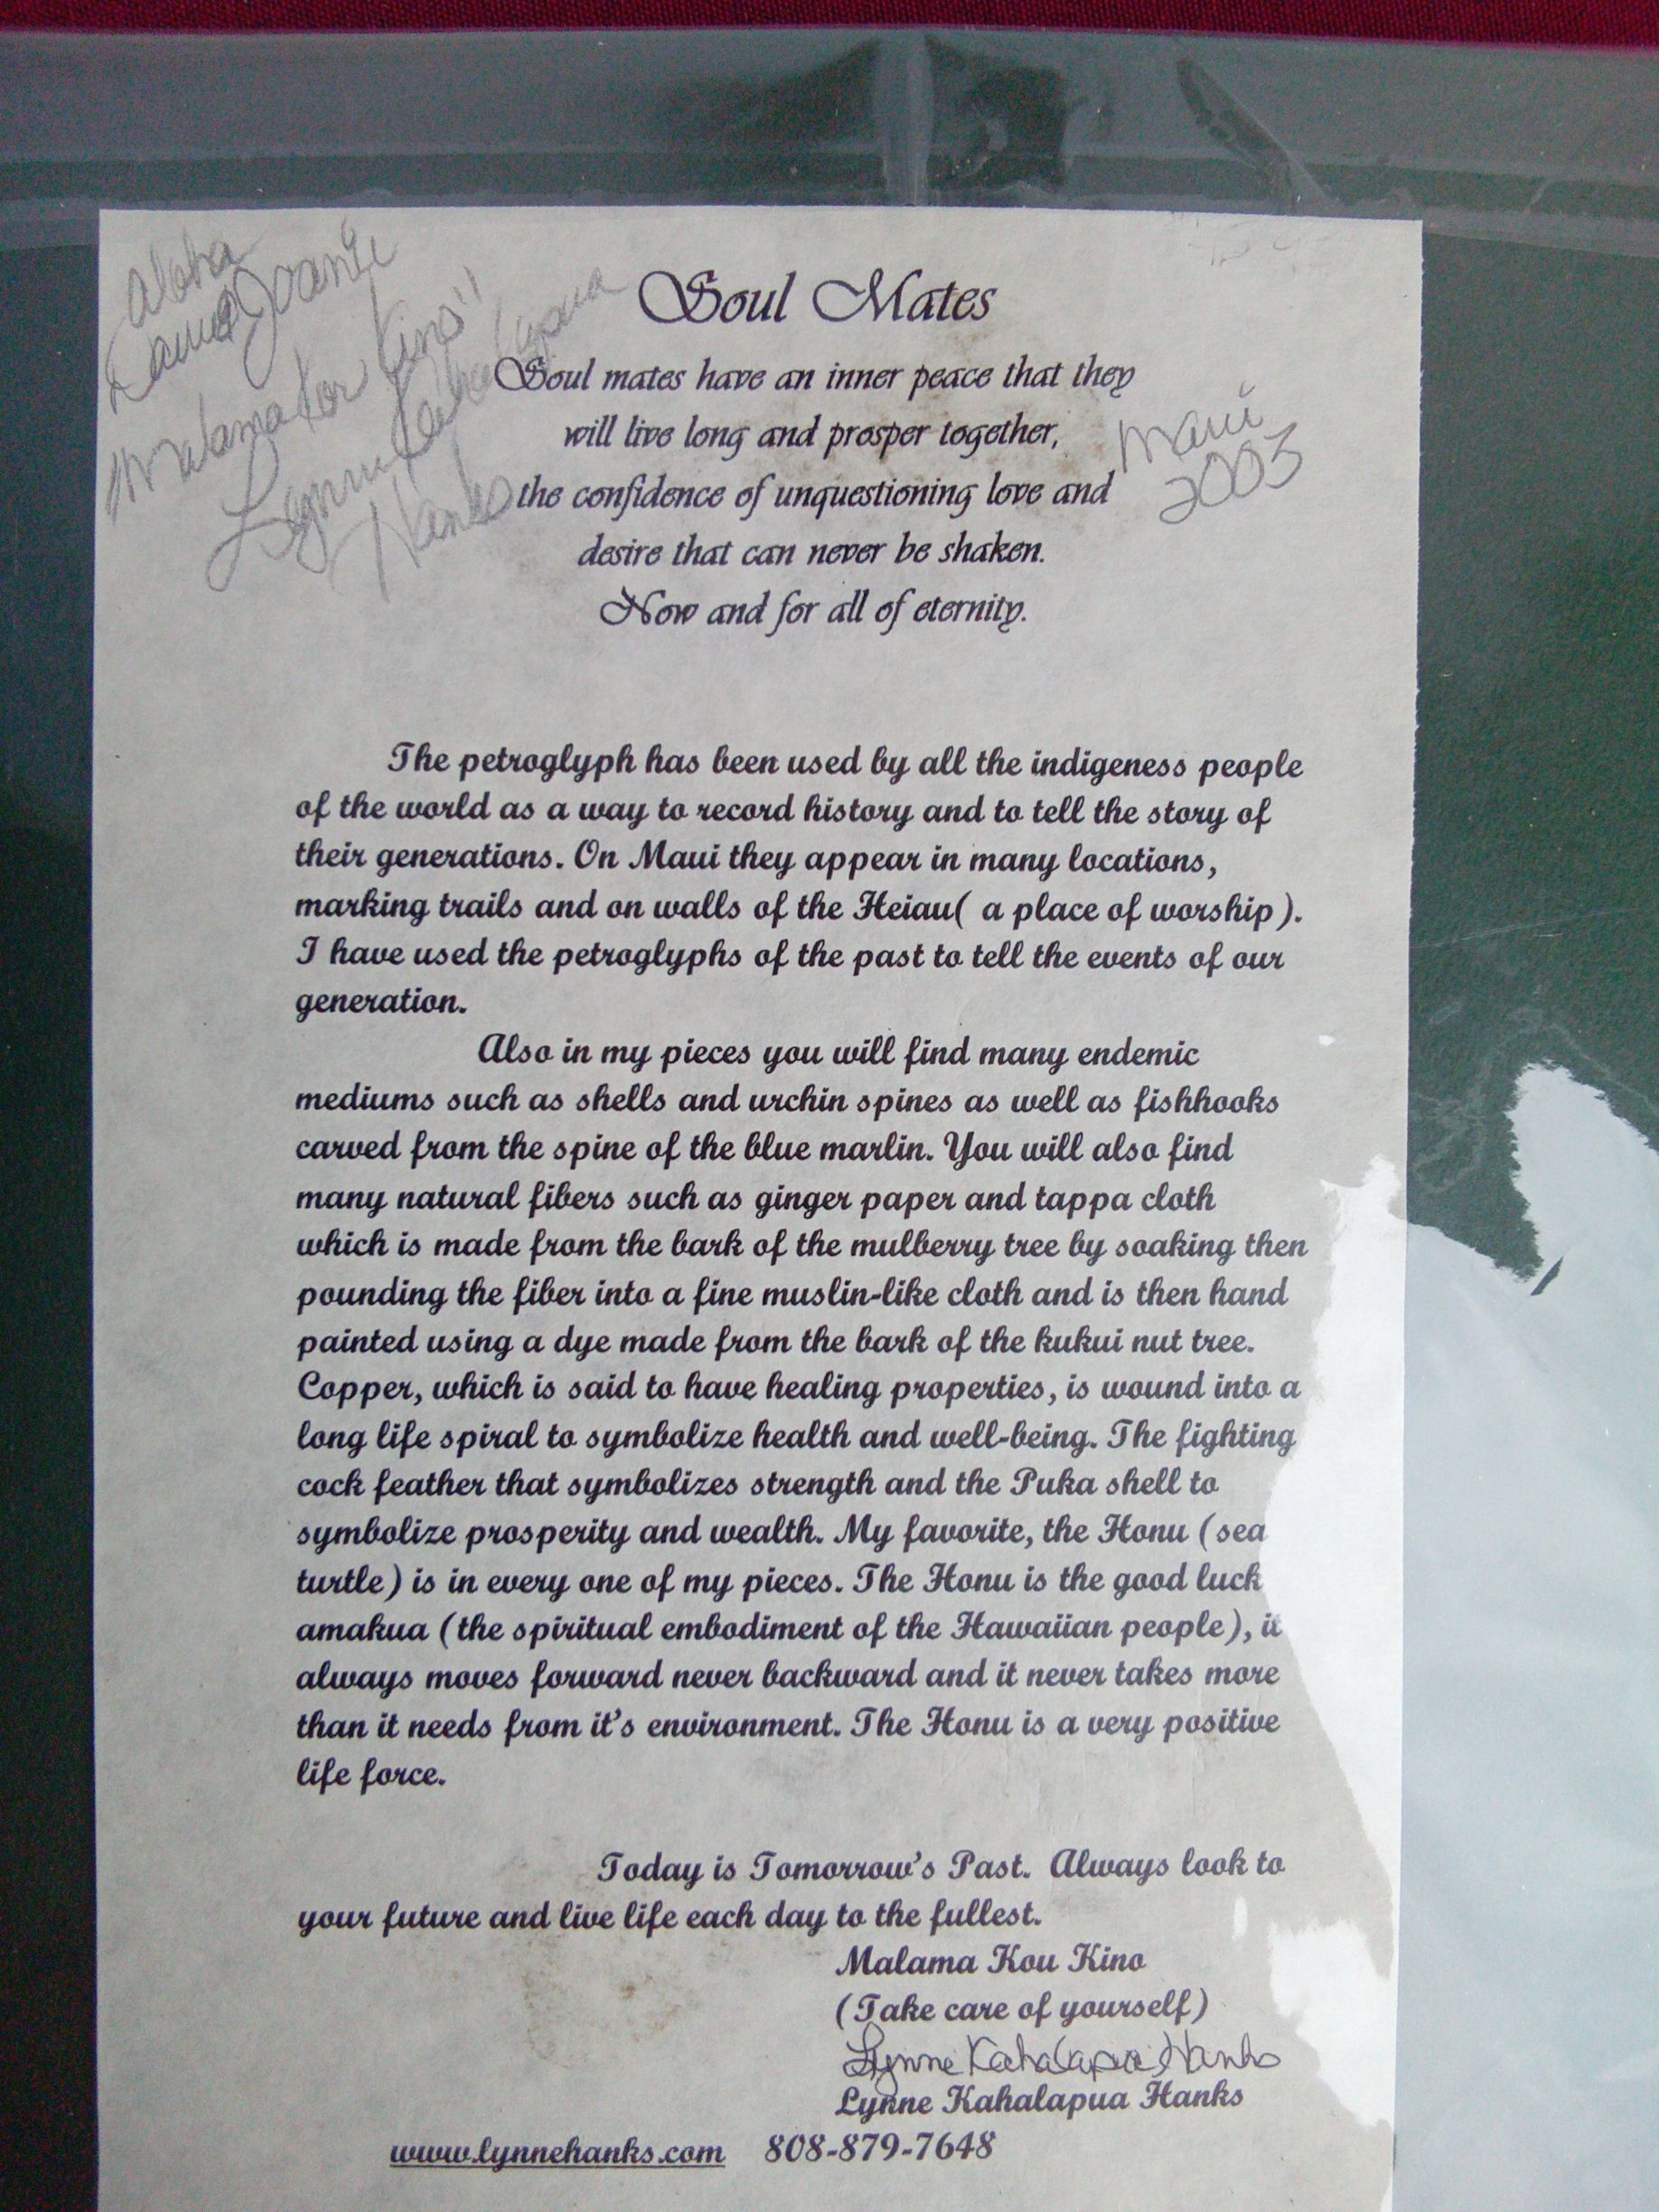 Aloha
Malama Kou Kino"
Lynne Kahalapua
Hanks
Maui
2003
Soul Mates
Soul mates have an inner peace that they
will live long and prosper together,
the confidence of unquestioning love and
desire that can never be shaken.
Now and for all of eternity.
The petroglyph has been used by all the indigeness people
of the world as a way to record history and to tell the story of
their generations. On Maui they appear in many locations,
marking trails and on walls of the Heiau( a place of worship).
I have used the petroglyphs of the past to tell the events of our
generation.
Also in my pieces you will find many endemic
mediums such as shells and urchin spines as well as fishhooks
carved from the spine of the blue marlin. You will also find
many natural fibers such as ginger paper and tappa cloth
which is made from the bark of the mulberry tree by soaking then
pounding the fiber into a fine muslin-like cloth and is then hand
painted using a dye made from the bark of the kukui nut tree.
Copper, which is said to have healing properties, is wound into a
long life spiral to symbolize health and well-being. The fighting
cock feather that symbolizes strength and the Puka shell to
symbolize prosperity and wealth. My favorite, the Honu (sea
turtle) is in every one of my pieces. The Honu is the good luck
amakua (the spiritual embodiment of the Hawaiian people), it
always moves forward never backward and it never takes more
than it needs from it's environment. The Honu is a very positive
life force.
Today is Tomorrow's Past. Always look to
your future and live life each day to the fullest.
Malama Kou Kino
(Take care of yourself)
Lynne Kahalapua Hanks
Lynne Kahalapua Hanks
www.lynnehanks.com 808-879-7648